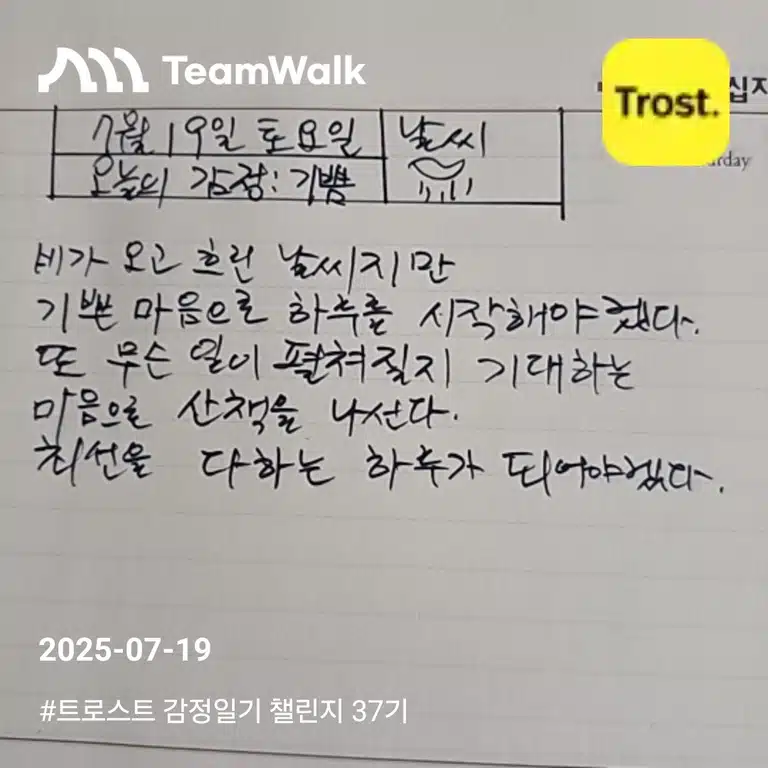 TeamWalk
Trost.
십자
rday
7월 19일 토요일 날씨
오늘의 감정: 기쁨
비가 오고 흐린 날씨지만
기쁜 마음으로 하루를 시작해야겠다.
또 무슨 일이 펼쳐질지 기대하는
마음으로 산책을 나선다.
최선을 다하는 하루가 되어야겠다.
2025-07-19
#트로스트 감정일기 챌린지 37기